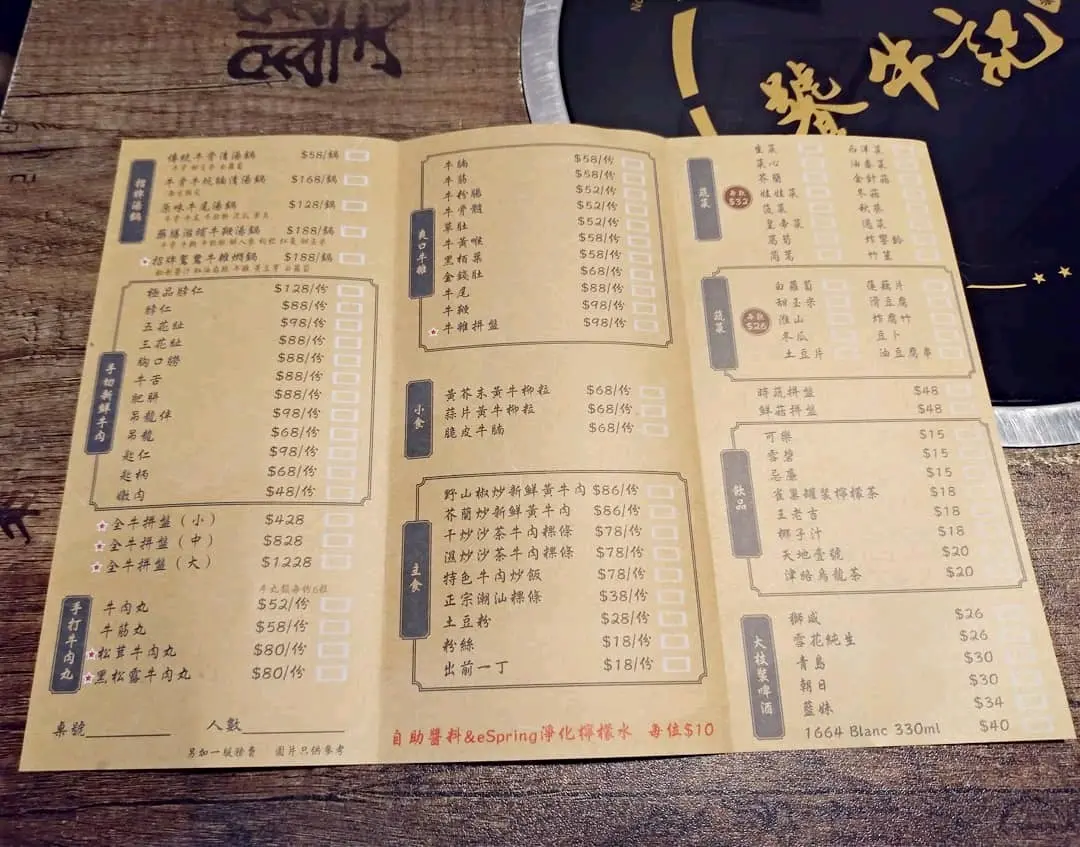 饕牛記
招牌湯鍋
傳統牛骨清湯鍋 $58/鍋
牛骨牛坑腩清湯鍋 $168/鍋
原味牛尾湯鍋 $128/鍋
藥膳滋補牛鞭湯鍋 $188/鍋
招牌鴛鴦牛雜焖鍋 $188/鍋
手切新鮮牛肉
極品脖仁 $128/份
脖仁 $88/份
五花趾 $98/份
三花趾 $88/份
胸口朥 $88/份
牛舌 $88/份
肥胼 $88/份
吊龍伴 $98/份
吊龍 $68/份
匙仁 $98/份
匙柄 $68/份
嫩肉 $48/份
全牛拼盤(小) $428
全牛拼盤(中) $828
全牛拼盤(大) $1228
牛丸類每份6粒
手打牛肉丸
牛肉丸 $52/份
牛筋丸 $58/份
松茸牛肉丸 $80/份
黑松露牛肉丸 $80/份
桌號 人數
另加一服務費 圖片只供參考
爽口牛雜
牛腩 $58/份
牛筋 $58/份
牛粉腸 $52/份
牛骨髓 $52/份
草肚 $52/份
牛黃喉 $58/份
黑栢葉 $58/份
金錢肚 $68/份
牛尾 $88/份
牛鞭 $98/份
牛雜拼盤 $98/份
小食
黃芥末黃牛柳粒 $68/份
蒜片黃牛柳粒 $68/份
脆皮牛腩 $68/份
主食
野山椒炒新鮮黃牛肉 $86/份
芥蘭炒新鮮黃牛肉 $86/份
干炒沙茶牛肉粿條 $78/份
濕炒沙茶牛肉粿條 $78/份
特色牛肉炒飯 $78/份
正宗潮汕粿條 $38/份
土豆粉 $28/份
粉絲 $18/份
出前一丁 $18/份
自助醬料&eSpring淨化檸檬水 每位$10
蔬菜
每款 $32
生菜 西洋菜
菜心 油麥菜
芥蘭 金針菇
娃娃菜 冬菇
菠菜 秋葵
皇帝菜
萵筍 炸響鈴
茼蒿 竹笙
蔬菜
每款 $26
白蘿蔔 蓮藕片
甜玉米 滑豆腐
淮山 炸腐竹
冬瓜 豆卜
土豆片 油豆腐串
時蔬拼盤 $48
鮮菇拼盤 $48
飲品
可樂 $15
雪碧 $15
忌廉 $15
雀巢罐裝檸檬茶 $18
王老吉 $18
椰子汁 $18
天地壹號 $20
津路烏龍茶 $20
大枝裝啤酒
獅威 $26
雪花純生 $26
青島 $30
朝日 $30
藍妹 $34
1664 Blanc 330ml $40